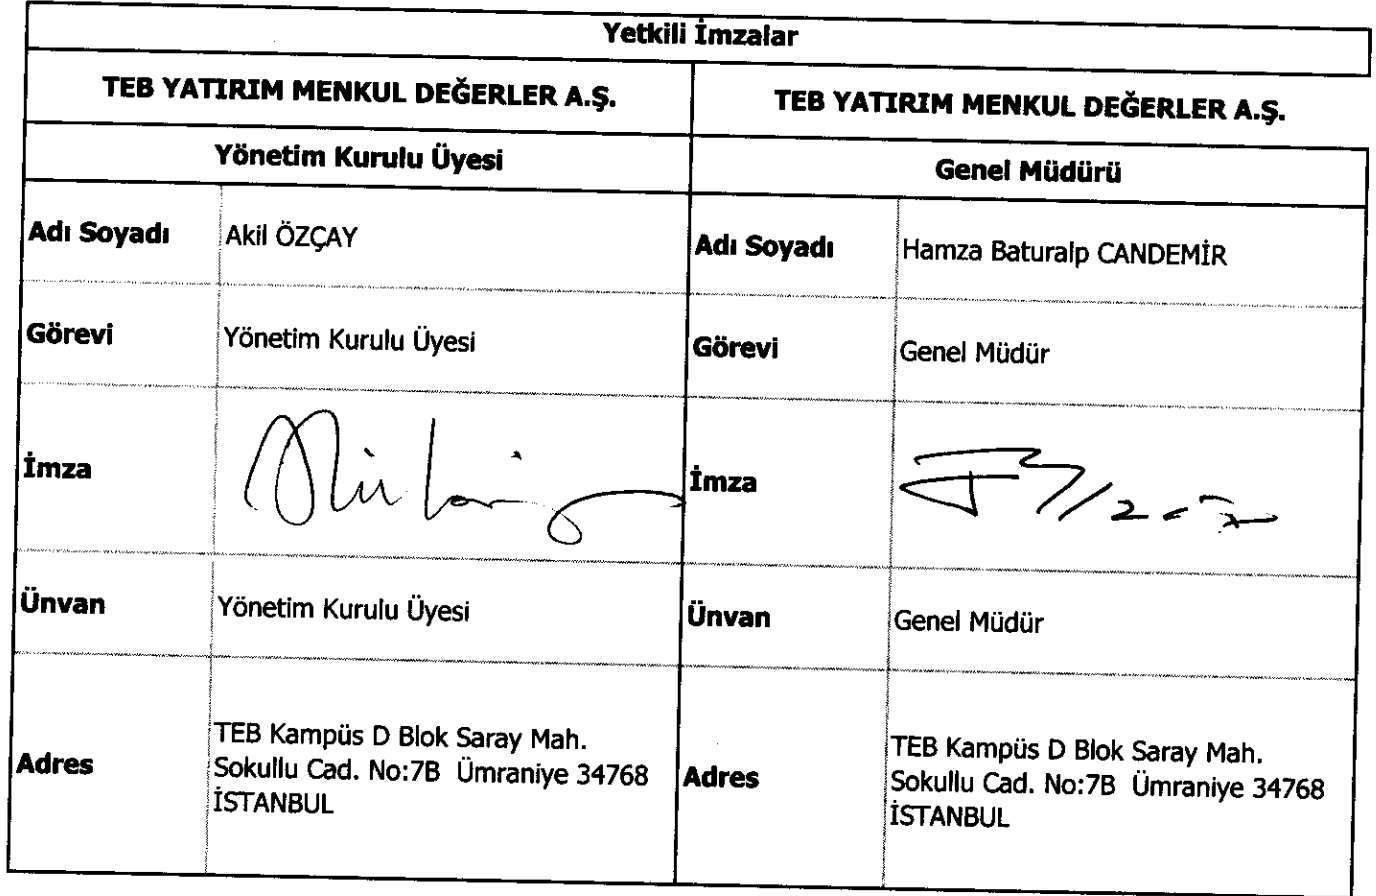 Yetkili İmzalar
TEB YATIRIM MENKUL DEĞERLER A.Ş.
TEB YATIRIM MENKUL DEĞERLER A.Ş.
Yönetim Kurulu Üyesi
Genel Müdürü
Adı Soyadı
Akil ÖZÇAY
Adı Soyadı
Hamza Baturalp CANDEMİR
Görevi
Yönetim Kurulu Üyesi
Görevi
Genel Müdür
İmza
İmza
Ünvan
Yönetim Kurulu Üyesi
Ünvan
Genel Müdür
Adres
TEB Kampüs D Blok Saray Mah.
Sokullu Cad. No:7B Ümraniye 34768
İSTANBUL
Adres
TEB Kampüs D Blok Saray Mah.
Sokullu Cad. No:7B Ümraniye 34768
İSTANBUL